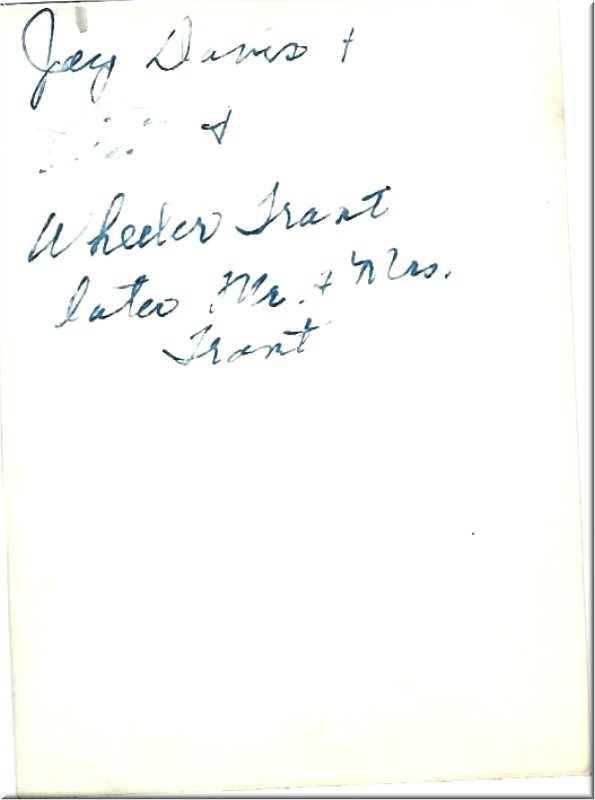 Jay Davis +
+
Wheeler Trant
later Mr. + Mrs.
Trant